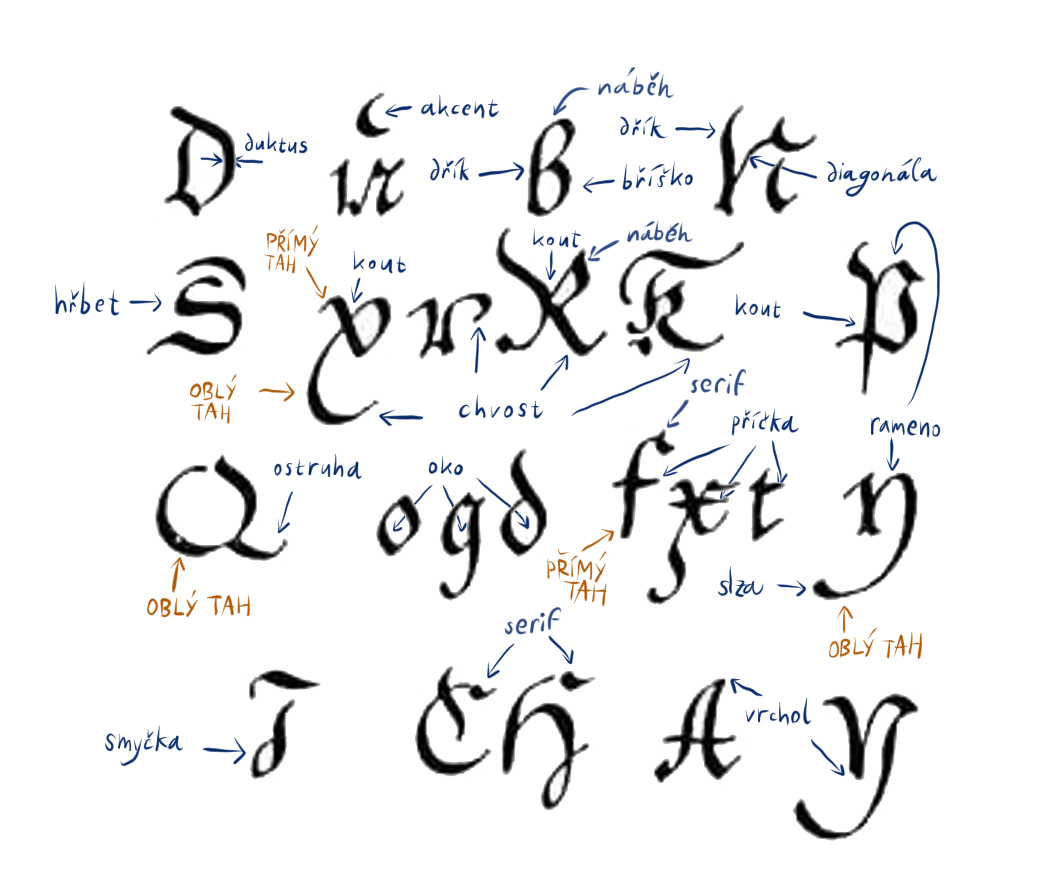 náběh
akcent
dřík
duktus
D ů B N
dřík
bříško
diagonála
PŘÍMÝ
TAH
kout
kout
náběh
hřbet
S x r X K P
kout
OBLÝ
TAH
chvost
serif
příčka
rameno
ostruha
oko
Q o g d f x t y
PŘÍMÝ
TAH
slza
OBLÝ TAH
OBLÝ TAH
serif
T C H A Y
vrchol
smyčka